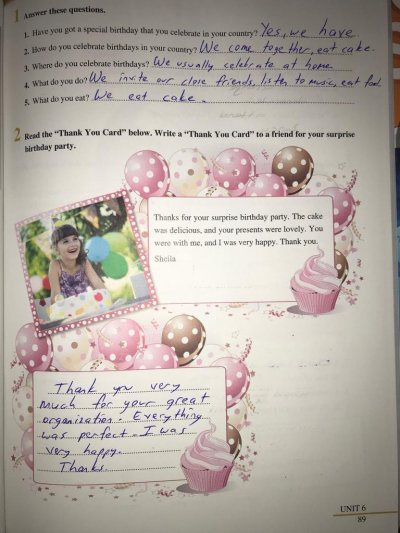 1 Answer these questions.
1. Have you got a special birthday that you celebrate in your country? Yes, we have
2. How do you celebrate birthdays in your country? We come together, eat cake.
3. Where do you celebrate birthdays? We usually celebrate at home
4. What do you do? We invite our close friends, listen to music, eat food
5. What do you eat? We eat cake.
2 Read the “Thank You Card” below. Write a “Thank You Card” to a friend for your surprise
birthday party.
Thanks for your surprise birthday party. The cake
was delicious, and your presents were lovely. You
were with me, and I was very happy. Thank you.
Sheila
Thank you very
much for your great
organization. Everything
was perfect. I was
very happy.
Thanks.
UNIT 6
89